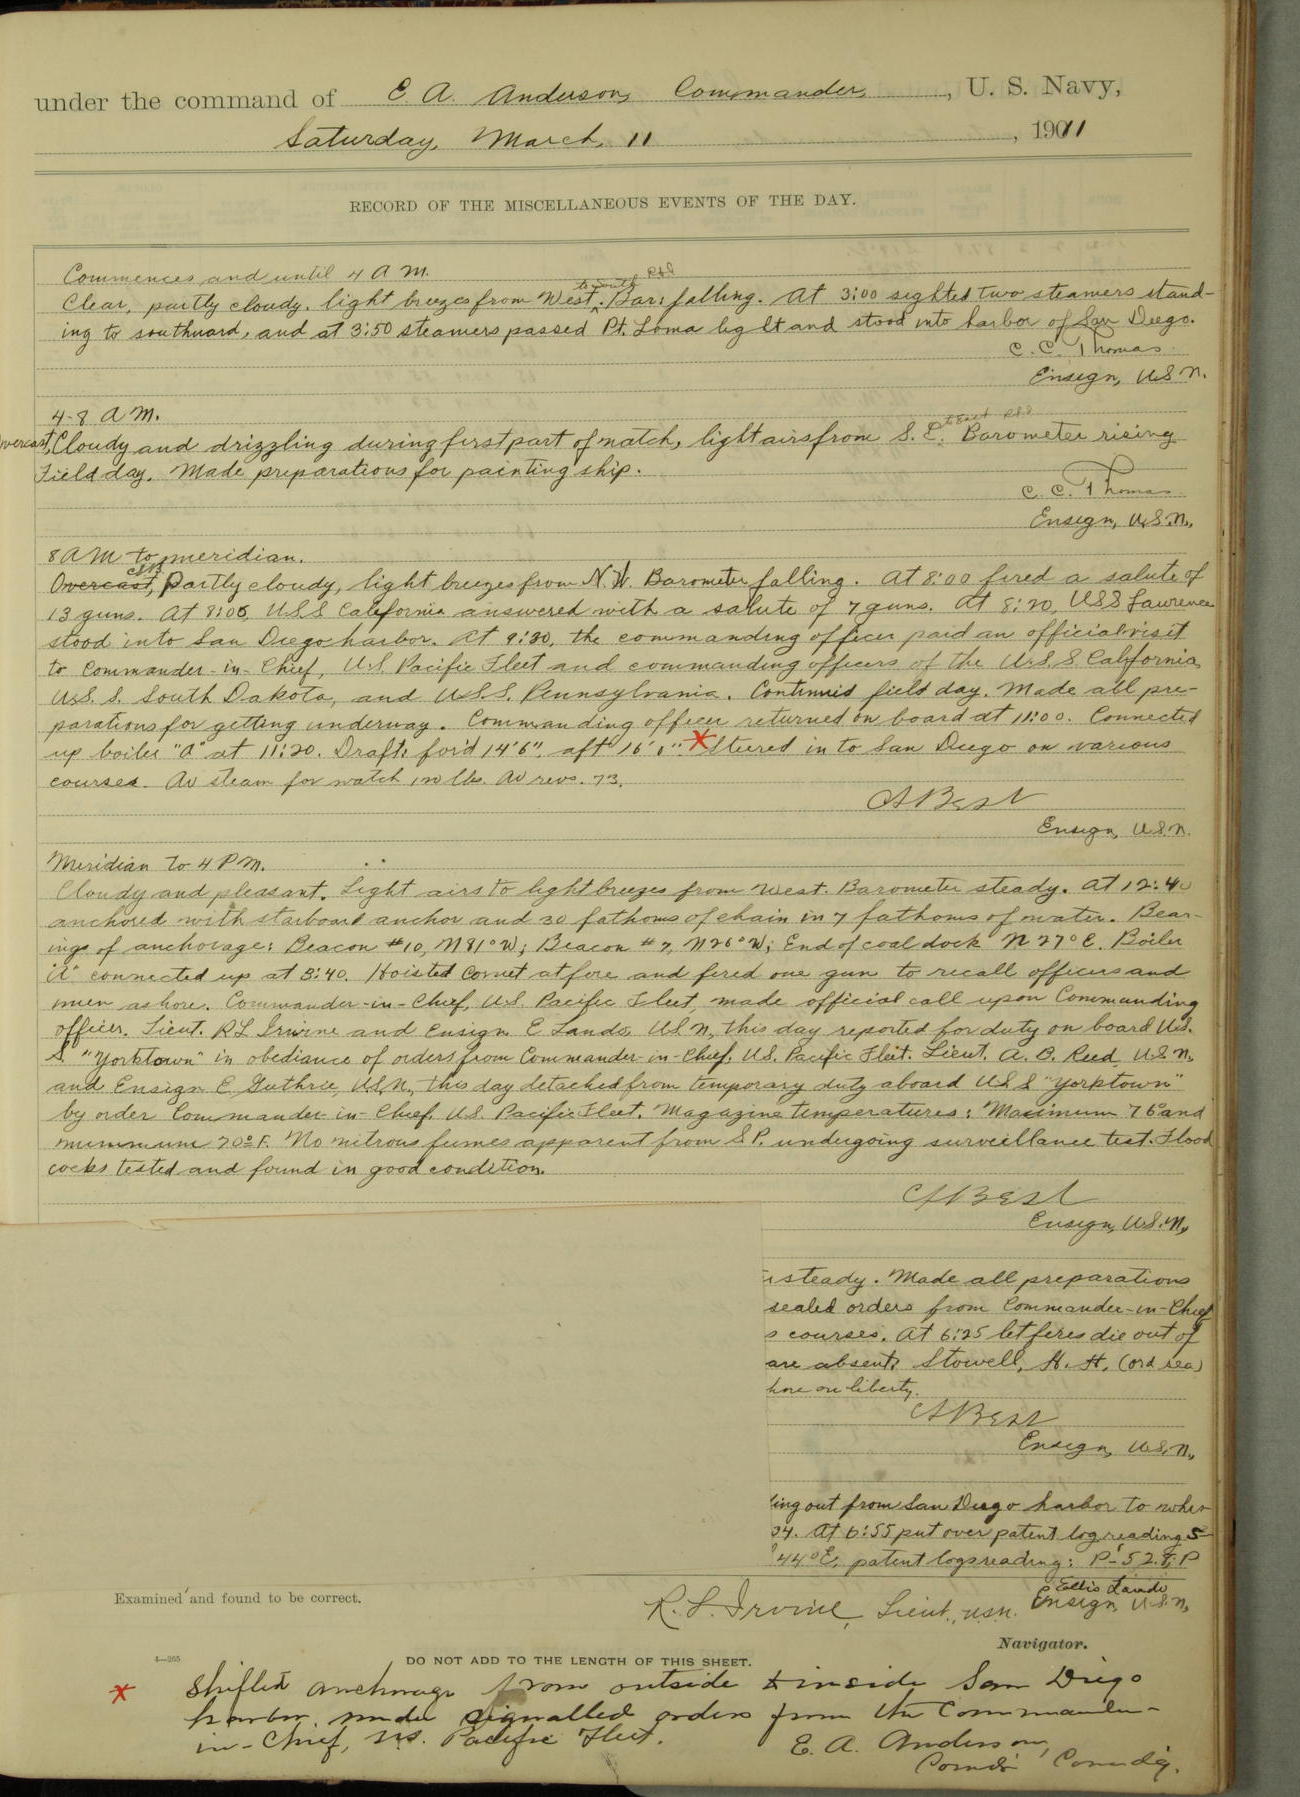 under the command of E. A. Anderson, Commander, U. S. Navy,
Saturday, March, 11, 1911
RECORD OF THE MISCELLANEOUS EVENTS OF THE DAY.
Commences and until 4 A M.
to south
Clear, partly cloudy. light breezes from West. Bar: falling. At 3:00 sighted two steamers stand-
ing to southward, and at 3:50 steamers passed Pt. Loma light and stood into harbor of San Diego.
C. C. Thomas
Ensign, U.S.N.
4-8 A M.
Overcast, Cloudy and drizzling during first part of watch, light airs from S. E. Barometer rising
Field day. Made preparations for painting ship.
C. C. Thomas
Ensign, U.S.N.,
8 A M to meridian.
Overcast, Partly cloudy, light breezes from N.W. Barometer falling. At 8:00 fired a salute of
13 guns. At 8:05, U.S.S California answered with a salute of 7 guns. At 8:20, U.S.S Lawrence
stood into San Diego harbor. At 9:30, the commanding officer paid an official visit
to Commander-in-Chief, U.S. Pacific Fleet and commanding officers of the U.S.S. California
U.S.S. South Dakota, and U.S.S. Pennsylvania. Continued field day. Made all pre-
parations for getting underway. Commanding officer returned on board at 11:00. Connected
up boiler "A" at 11:20. Draft: for'd 14'6", aft 16' " x Steered in to San Diego on various
courses. Av steam for watch 120 lbs. Av revs. 73.
C A Best
Ensign, U.S.N.
Meridian to 4 P M.
Cloudy and pleasant. Light airs to light breezes from West. Barometer steady. At 12:40
anchored with starboard anchor and 30 fathoms of chain in 7 fathoms of water. Bear-
ings of anchorage: Beacon #10, N 81° W; Beacon #7, N 26° W; End of coal dock N 27° E. Boiler
connected up at 3:40. Hoisted Cornet at fore and fired one gun to recall officers and
men ashore. Commander-in-Chief, U.S. Pacific Fleet, made official call upon Commanding
officer. Lieut. R L Irvine and Ensign E Lando U.S.N., this day reported for duty on board U.S.
S. "Yorktown" in obediance of orders from Commander-in-Chief, U.S. Pacific Fleet. Lieut. A. B. Reed, U.S.N.
and Ensign E Guthrie, U.S.N., this day detached from temporary duty aboard U.S.S "Yorktown"
by order Commander-in-Chief, U.S. Pacific Fleet. Magazine temperatures: Maximum 76 and
minimum 70° F. No nitrous fumes apparent from S.P. undergoing surveillance test. Flood
cocks tested and found in good condition.
C A Best
Ensign, U.S.N.,
steady. Made all preparations
sealed orders from Commander-in-Chief
s courses. At 6:25 let fires die out of
are absent: Stowell, H. H, (ord sea)
hore on liberty.
C A Best
Ensign, U.S.N.,
ing out from San Diego harbor to
04. At 6:55 put over patent log reading 5
44° E, patent logs reading: P-52.8; P
Examined and found to be correct.
Ellis Lando
R. L. Irvine, Lieut., USN. Ensign, U.S.N.,
Navigator.
4—265
DO NOT ADD TO THE LENGTH OF THIS SHEET.
x Shifted anchorage from outside to inside San Diego
harbor, under signalled orders from the Commander-
in-Chief, U.S. Pacific Fleet.
E. A. Anderson,
Comdr Comd'g.